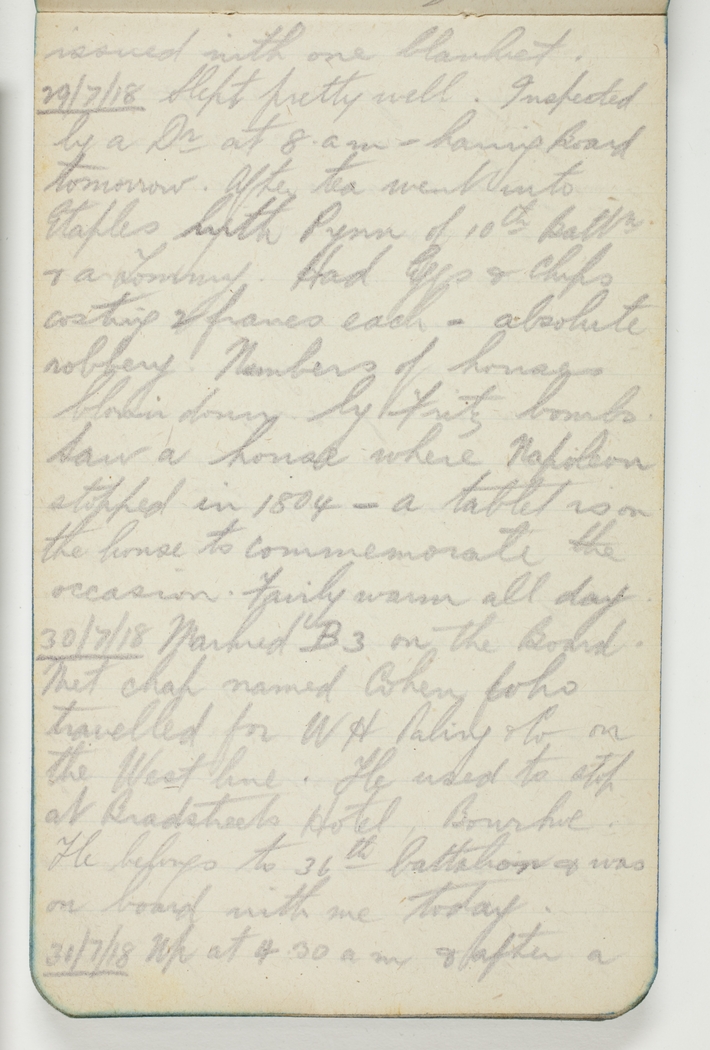 issued with one blanket.
29/7/18 Slept pretty well. Inspected
by a Dr at 8 am - having Board
tomorrow. After tea went into
Etaples with Pynn of 10th Battn
& a Tommy. Had Eggs & Chips
costing 2 francs each - absolute
robbery. Numbers of houses
blown down by Fritz bombs.
Saw a house where Napoleon
stopped in 1804 - a tablet is on
the house to commemorate the
occasion. Fairly warm all day.
30/7/18 Marked B3 on the Board.
Met chap named Cohen who
travelled for W H Paling & Co on
the West line. He used to stop
at Bradstreets Hotel, Bourke.
He belongs to 36th battalion & was
on board with me today.
31/7/18 Up at 4.30 am & after a